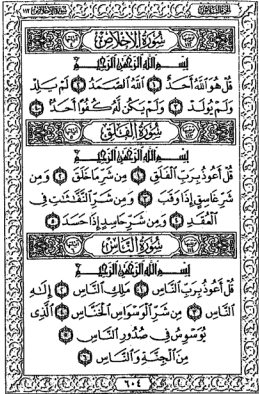 سُورَةُ الإِخْلَاصِ
بِسْمِ اللَّهِ الرَّحْمَٰنِ الرَّحِيمِ
قُلْ هُوَ اللَّهُ أَحَدٌ ١ اللَّهُ الصَّمَدُ ٢ لَمْ يَلِدْ
وَلَمْ يُولَدْ ٣ وَلَمْ يَكُن لَّهُ كُفُوًا أَحَدٌ ٤
سُورَةُ الْفَلَقِ
بِسْمِ اللَّهِ الرَّحْمَٰنِ الرَّحِيمِ
قُلْ أَعُوذُ بِرَبِّ الْفَلَقِ ١ مِن شَرِّ مَا خَلَقَ ٢ وَمِن
شَرِّ غَاسِقٍ إِذَا وَقَبَ ٣ وَمِن شَرِّ النَّفَّاثَاتِ فِي
الْعُقَدِ ٤ وَمِن شَرِّ حَاسِدٍ إِذَا حَسَدَ ٥
سُورَةُ النَّاسِ
بِسْمِ اللَّهِ الرَّحْمَٰنِ الرَّحِيمِ
قُلْ أَعُوذُ بِرَبِّ النَّاسِ ١ مَلِكِ النَّاسِ ٢ إِلَٰهِ
النَّاسِ ٣ مِن شَرِّ الْوَسْوَاسِ الْخَنَّاسِ ٤ الَّذِي
يُوَسْوِسُ فِي صُدُورِ النَّاسِ ٥
مِنَ الْجِنَّةِ وَالنَّاسِ ٦
٦٠٤